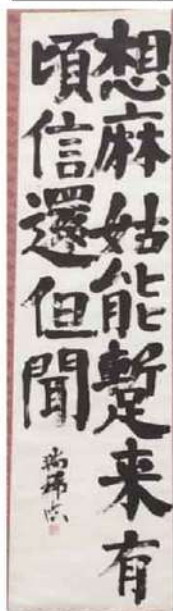 想麻姑能蹔来有
頃信還但聞